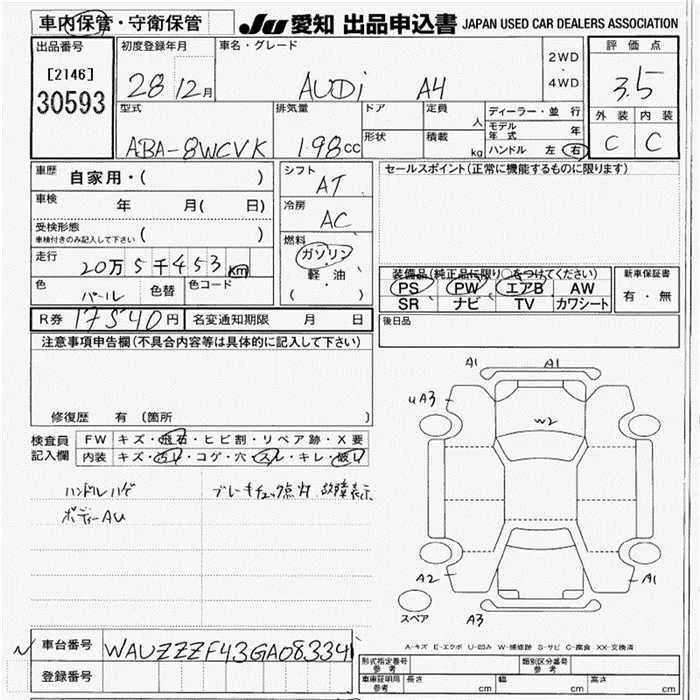 車内保管・守衛保管
JU 愛知 出品申込書 JAPAN USED CAR DEALERS ASSOCIATION
出品番号
[2146]
30593
初度登録年月
28 12月
車名・グレード
AUDi A4
2WD
・
4WD
評価点
3.5
外装 内装
C C
型式
ABA-8WCVK
排気量
1.98cc
ドア
形状
定員
人
積載
kg
ディーラー・並行
モデル年式 年
ハンドル 左 右
車歴 自家用・( )
車検 年 月( 日)
受検形態
車検付きのみ記入して下さい ( )
走行
20万5千453km
色 パール 色替 色コード
シフト
AT
冷房
AC
燃料
ガソリン
軽・油
( )
セールスポイント(正常に機能するものに限ります)
装備品(純正品に限り○をつけてください)
PS PW エアB AW
SR ナビ TV カワシート
新車保証書
有・無
R券 17540円 名変通知期限 月 日
後日品
注意事項申告欄(不具合内容等は具体的に記入して下さい)
修復歴 有 [箇所 ]
検査員記入欄
FW キズ・飛石・ヒビ割・リペア跡・X要
内装 キズ・汚レ・コゲ・穴・スレ・キレ・破レ
ハンドルハゲ
ボディーAU
ブレーキチェック点灯 故障表示
A1 A1
uA3
W2
A2 A1
A3
スペア
A-キズ E-エクボ U-凹み W-補修跡 S-サビ C-腐食 XX-交換済
車台番号 WAUZZZF43GA083341
登録番号
形式指定番号 参考 類別区分番号 参考
車庫証明用 参考 長さ cm 幅 cm 高さ cm